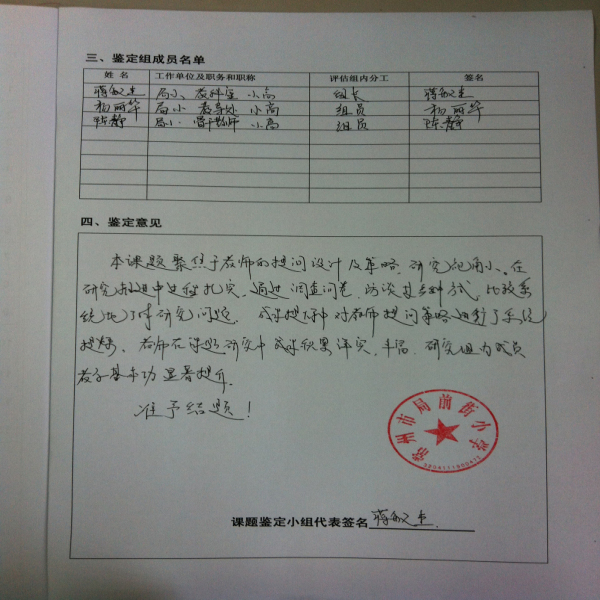 三、鉴定组成员名单
姓 名 工作单位及职务和职称 评估组内分工 签名
蒋敏杰 局小 教科室 小高 组长 蒋敏杰
杨丽华 局小 教导处 小高 组员 杨丽华
陈静 局小 骨干教师 小高 组员 陈静
四、鉴定意见
本课题聚焦于教师的提问设计及策略,研究 小。在
研究 进中 扎实,通过调查问卷、访谈 多种方式,比较系
统地了 研究问题。成果 中对教师提问策略进行了系统
提 。教师在课题研究中 积累详实、丰富,研究组内成员
教学基本功显著提升。
准予结题!
常州市局前街小学
课题鉴定小组代表签名 蒋敏杰